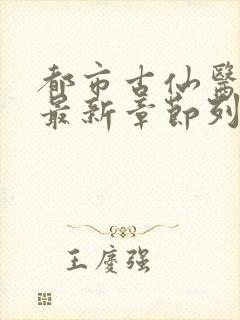 都市古仙醫
最新章節列
王慶强